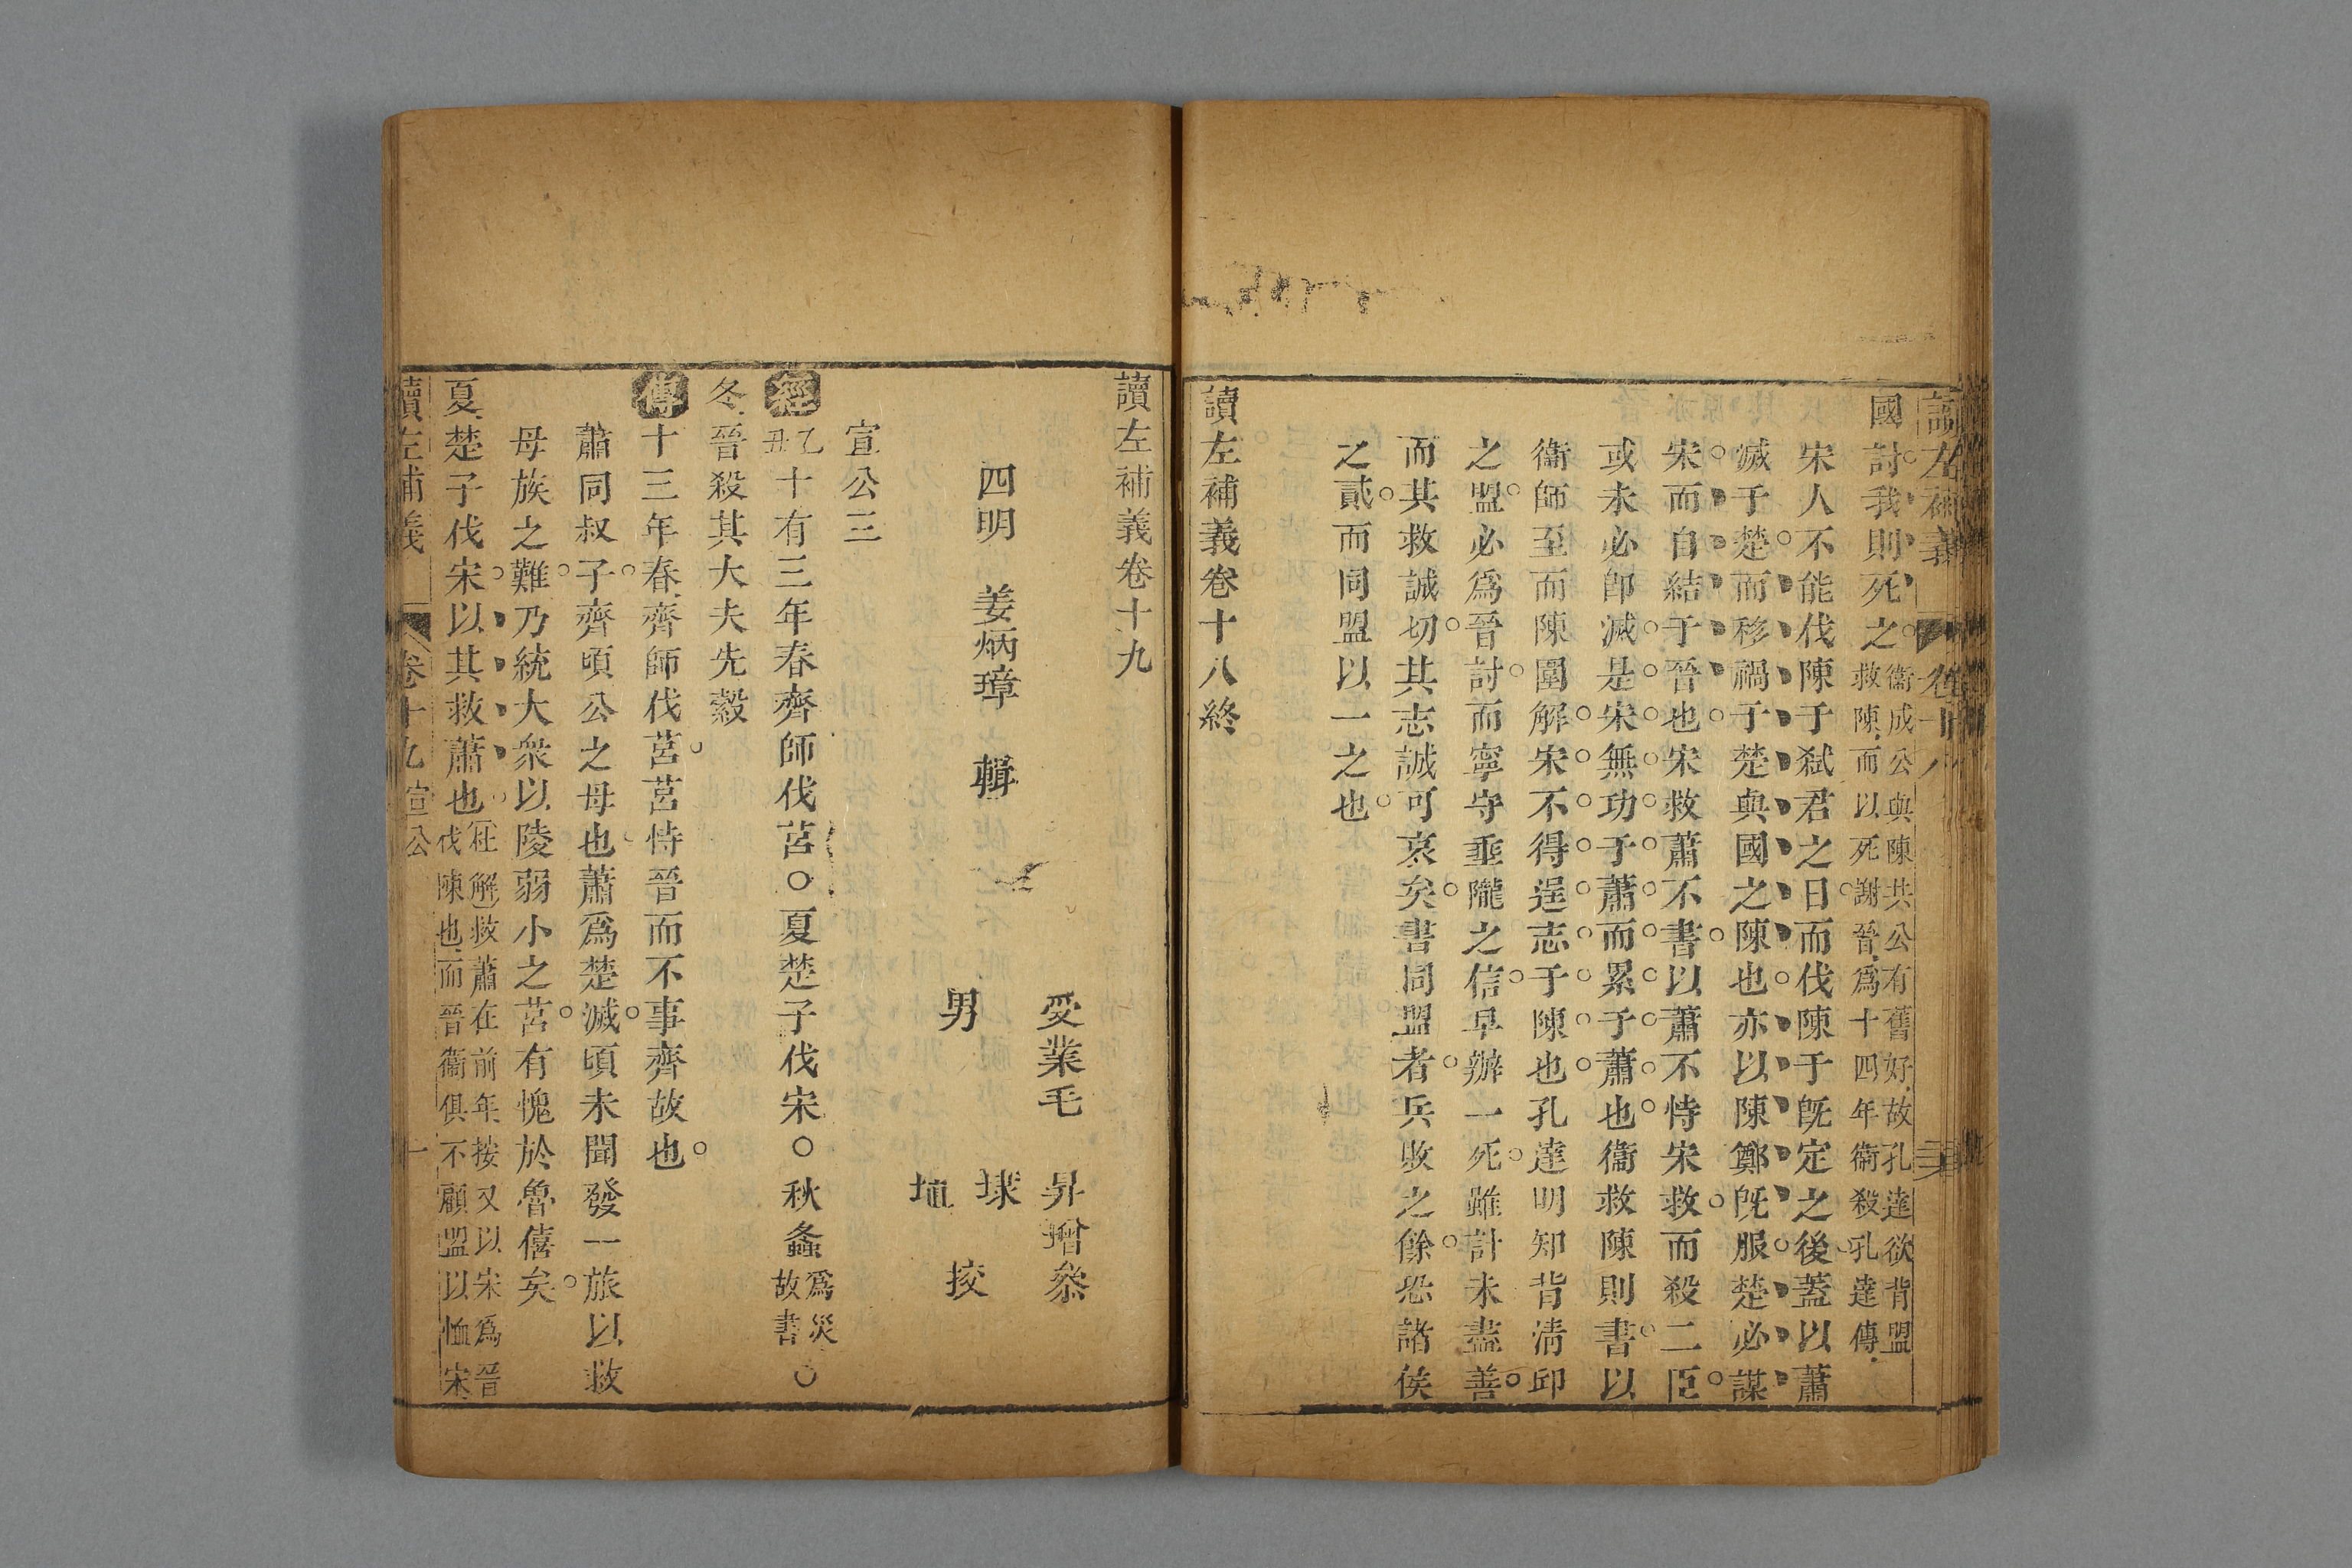 讀左補義 卷十八
國討我則死之衞成公與陳共公有舊好故孔達欲背盟救陳而以死謝晉爲十四年衞殺孔達傳
宋人不能伐陳于弑君之日而伐陳于旣定之後蓋以蕭
滅于楚而移禍于楚與國之陳也亦以陳鄭旣服楚必謀
宋而自結于晉也宋救蕭不書以蕭不恃宋救而殺二臣
或未必卽滅是宋無功于蕭而累于蕭也衞救陳則書以
衞師至而陳圍解宋不得逞志于陳也孔達明知背淸邱
之盟必爲晉討而寧守垂隴之信早辦一死雖計未盡善
而其救誠切其志誠可哀矣書同盟者兵敗之餘恐諸侯
之貳而同盟以一之也
讀左補義卷十八終
讀左補義卷十九
受業毛 昇增叅
四明 姜炳璋 輯
球
男 挍
埴
宣公三
經乙丑十有三年春齊師伐莒○夏楚子伐宋○秋螽爲災故書○
冬晉殺其大夫先縠
傳十三年春齊師伐莒莒恃晉而不事齊故也
蕭同叔子齊頃公之母也蕭爲楚滅頃未聞發一旅以救
母族之難乃統大衆以陵弱小之莒有愧於魯僖矣
夏楚子伐宋以其救蕭也杜解救蕭在前年按又以宋爲晉伐陳也而晉衞俱不顧盟以恤宋
讀左補義 卷十九 宣公 一